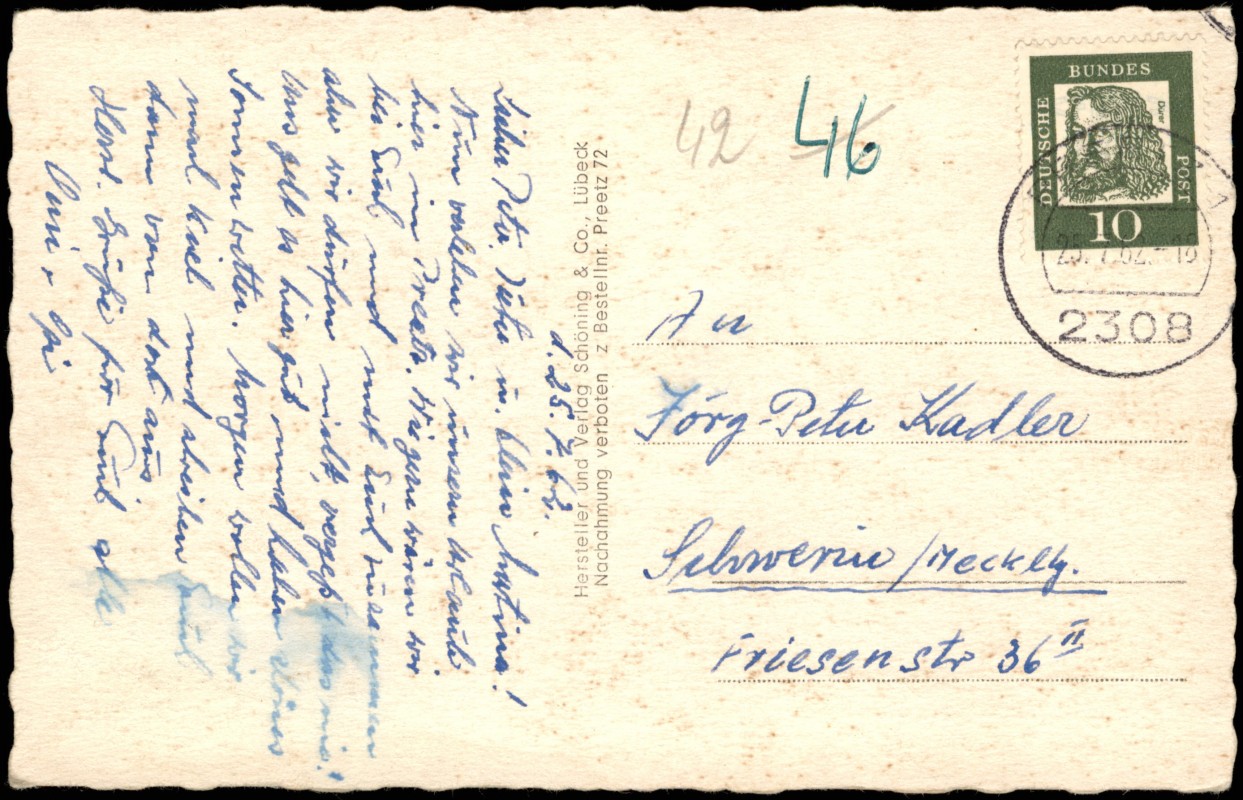 d. 25. 7. 62.
Lieber Peter, Jutta u. klein Martina!
Nun verleben wir unseren Urlaub
hier in Preetz. Wie gern wären wir
bei Euch und mit Euch zusammen
aber wir dürfen nicht, vergeßt das nie!
Uns geht es hier gut und haben schönes
Sonnenwetter. Morgen wollen wir
nach Kiel und
dann von dort aus
Horst. Grüße für Euch alle
Hersteller und Verlag Schöning & Co., Lübeck
Nachahmung verboten z Bestellnr. Preetz 72
42
46
DEUTSCHE
BUNDES
POST
Dürer
10
25. 7. 62. - 16
2308
An
Jörg-Peter Kadler
Schwerin/Mecklbg.
Friesenstr 36 II